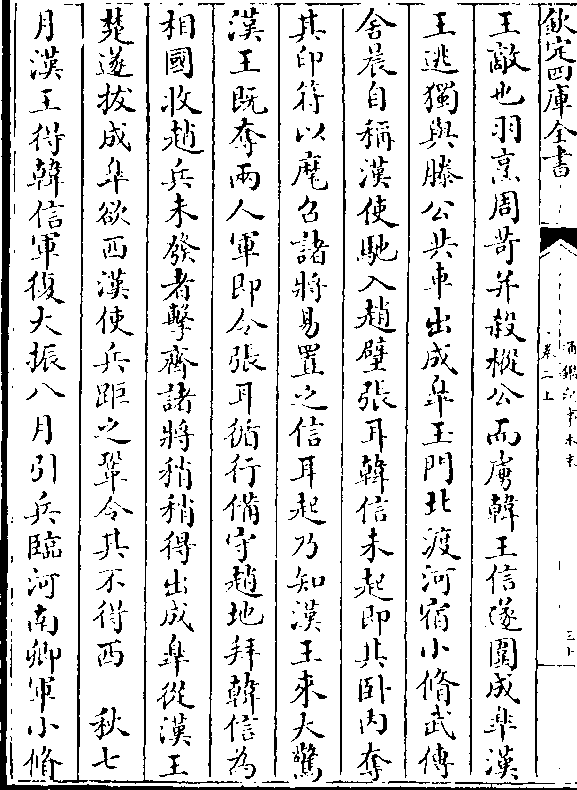 欽定四庫全書
通鑑紀事本末
卷二上
三十
王敵也羽烹周苛并殺樅公而虜韓王信遂圍成臯漢
王逃獨與滕公共車出成臯玉門北渡河宿小脩武傳
舍晨自稱漢使馳入趙壁張耳韓信未起即其卧内奪
其印符以麾召諸將易置之信耳起乃知漢王來大驚
漢王既奪兩人軍即令張耳循行備守趙地拜韓信為
相國收趙兵未發者擊齊諸將稍稍得出成臯從漢王
楚遂拔成臯欲西漢使兵距之鞏令其不得西　秋七
月漢王得韓信軍復大振八月引兵臨河南鄉軍小脩